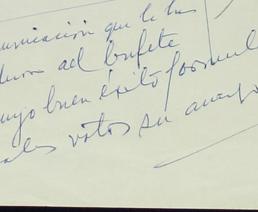 unicación que le ha
ad bufete
cuyo buen éxito formul
ales votos su amigo